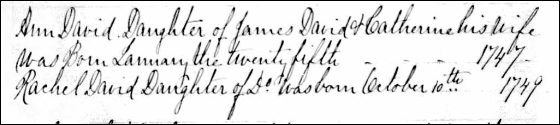 Ann David. Daughter of James David & Catherine his wife
was Born January the twenty fifth - - - 1747
Rachel David Daughter of Do. was born October 10th.. 1749